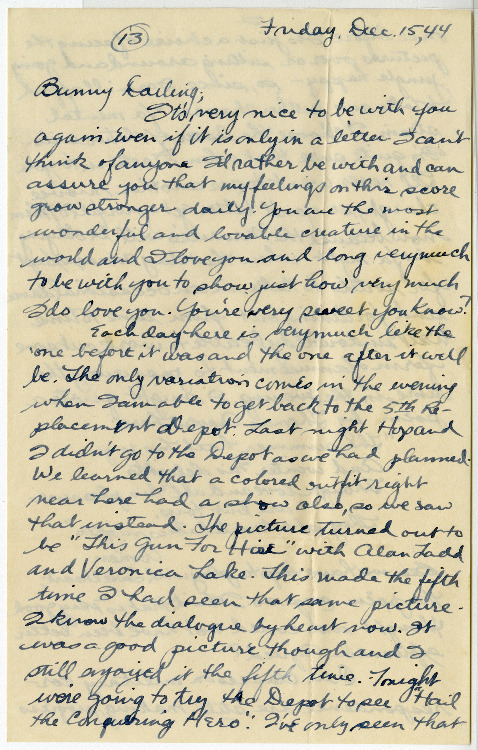 13
Friday, Dec. 15, 44
Bunny Darling;
It's very nice to be with you
again even if it is only in a letter I can't
think of anyone I'd rather be with and can
assure you that my feelings on this score
grow stronger daily. You are the most
wonderful and lovable creature in the
world and I love you and long very much
to be with you to show just how very much
I do love you. You're very sweet you know?
Each day here is very much like the
one before it was and the one after it will
be. The only variation comes in the evening
when I am able to get back to the 5th Re-
placement Depot. Last night Hop and
I didn't go to the Depot as we had planned.
We learned that a colored outfit right
near here had a show also, so we saw
that instead. The picture turned out to
be "This Gun For Hire" with Alan Ladd
and Veronica Lake. This made the fifth
time I had seen that same picture.
I know the dialogue by heart now. It
was a good picture though and I
still enjoyed it the fifth time. Tonight
we're going to try the Depot to see "Hail
the Conquering Hero". I've only seen that